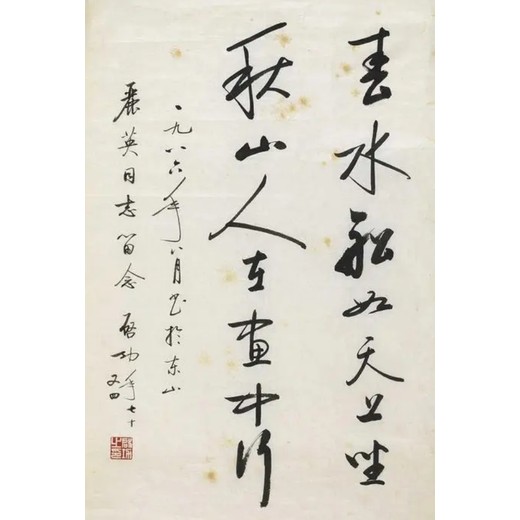 春水船如天上坐
秋山人在画中行
一九八六年八月书於东山
丽英同志留念 启功年七十
又四